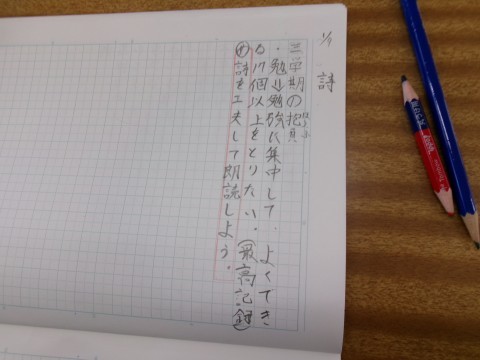 1/7
詩
三学期の抱負
・勉⇒勉強に集中して、よくでき
る17個以上をとりたい。(最高記録)
め詩を工夫して朗読しよう。